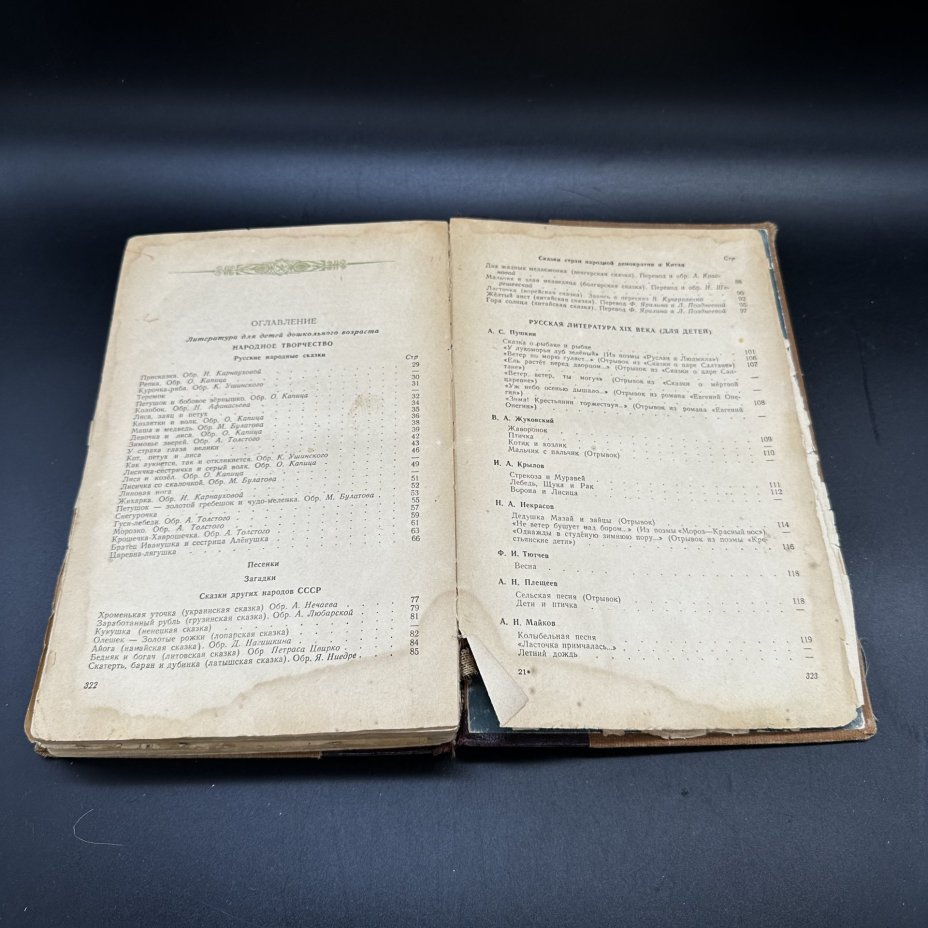 ОГЛАВЛЕНИЕ
Литература для детей дошкольного возраста
НАРОДНОЕ ТВОРЧЕСТВО
Русские народные сказки
Стр
Присказка. Обр. И. Карнауховой 29
Репка. Обр. О. Капица 30
Курочка-ряба. Обр. К. Ушинского 31
Теремок —
Петушок и бобовое зёрнышко. Обр. О. Капица 32
Колобок. Обр. Н. Афанасьева 34
Лиса, заяц и петух 35
Козлятки и волк. Обр. О. Капица 36
Маша и медведь. Обр. М. Булатова 38
Девочка и лиса. Обр. О. Капица 39
Зимовье зверей. Обр. А. Толстого 42
У страха глаза велики 43
Кот, петух и лиса 46
Как аукнется, так и откликнется. Обр. К. Ушинского —
Лисичка-сестричка и серый волк. Обр. О. Капица 49
Лиса и козёл. Обр. О. Капица —
Лисичка со скалочкой. Обр. М. Булатова 51
Липовая нога 52
Жихарка. Обр. И. Карнауховой 53
Петушок — золотой гребешок и чудо-меленка. Обр. М. Булатова 55
Снегурочка 57
Гуси-лебеди. Обр. А. Толстого 59
Морозко. Обр. А. Толстого 61
Крошечка-Хаврошечка. Обр. А. Толстого 63
Братец Иванушка и сестрица Алёнушка 66
Царевна-лягушка
Песенки
Загадки
Сказки других народов СССР
Хроменькая уточка (украинская сказка) Обр. А. Нечаева 77
Заработанный рубль (грузинская сказка). Обр. А. Любарской 79
Кукушка (ненецкая сказка) 81
Олешек — Золотые рожки (лопарская сказка) —
Айога (нанайская сказка). Обр. Д. Нагишкина 82
Бедняк и богач (литовская сказка). Обр Петраса Цвирко 84
Скатерть, баран и дубинка (латышская сказка). Обр. Я. Ниедре 85
322
Сказки стран народной демократии и Китая
Стр
Два жадных медвежонка (венгерская сказка). Перевод и обр. А. Крас-
новой —
Мальчик и злая медведица (болгарская сказка). Перевод и обр. Н. Ше-
решевской 88
Ласточка (корейская сказка). Запись и пересказ В. Кукарникина 90
Жёлтый аист (китайская сказка). Перевод Ф. Ярилина и Л. Позднеевой 92
Гора солнца (китайская сказка). Перевод Ф. Ярилина и Л. Позднеевой 95
97
РУССКАЯ ЛИТЕРАТУРА XIX ВЕКА (ДЛЯ ДЕТЕЙ)
А. С. Пушкин
Сказка о рыбаке и рыбке 101
«У лукоморья дуб зелёный» (Из поэмы «Руслан и Людмила») 106
«Ветер по морю гуляет...» (Отрывок из «Сказки о царе Салтане») 107
«Ель растёт перед дворцом...» (Отрывок из «Сказки о царе Сал-
тане») —
«Ветер, ветер, ты могуч» (Отрывок из «Сказки о мёртвой
царевне») —
«Уж небо осенью дышало...» (Отрывок из романа «Евгений Оне-
гин») —
«Зима! Крестьянин торжествуя...» (Отрывок из романа «Евгений
Онегин») 108
В. А. Жуковский
Жаворонок —
Птичка —
Котик и козлик 109
Мальчик с пальчик (Отрывок) 110
И. А. Крылов
Стрекоза и Муравей 111
Лебедь, Щука и Рак 112
Ворона и Лисица —
Н. А. Некрасов
Дедушка Мазай и зайцы (Отрывок) 114
«Не ветер бушует над бором...» (Из поэмы «Мороз—Красный нос») —
«Однажды в студёную зимнюю пору...» (Отрывок из поэмы «Кре-
стьянские дети») 116
Ф. И. Тютчев
Весна 118
А. Н. Плещеев
Сельская песня (Отрывок) 118
Дети и птичка —
А. Н. Майков
Колыбельная песня 119
«Ласточка примчалась...» —
Летний дождь —
21* 323